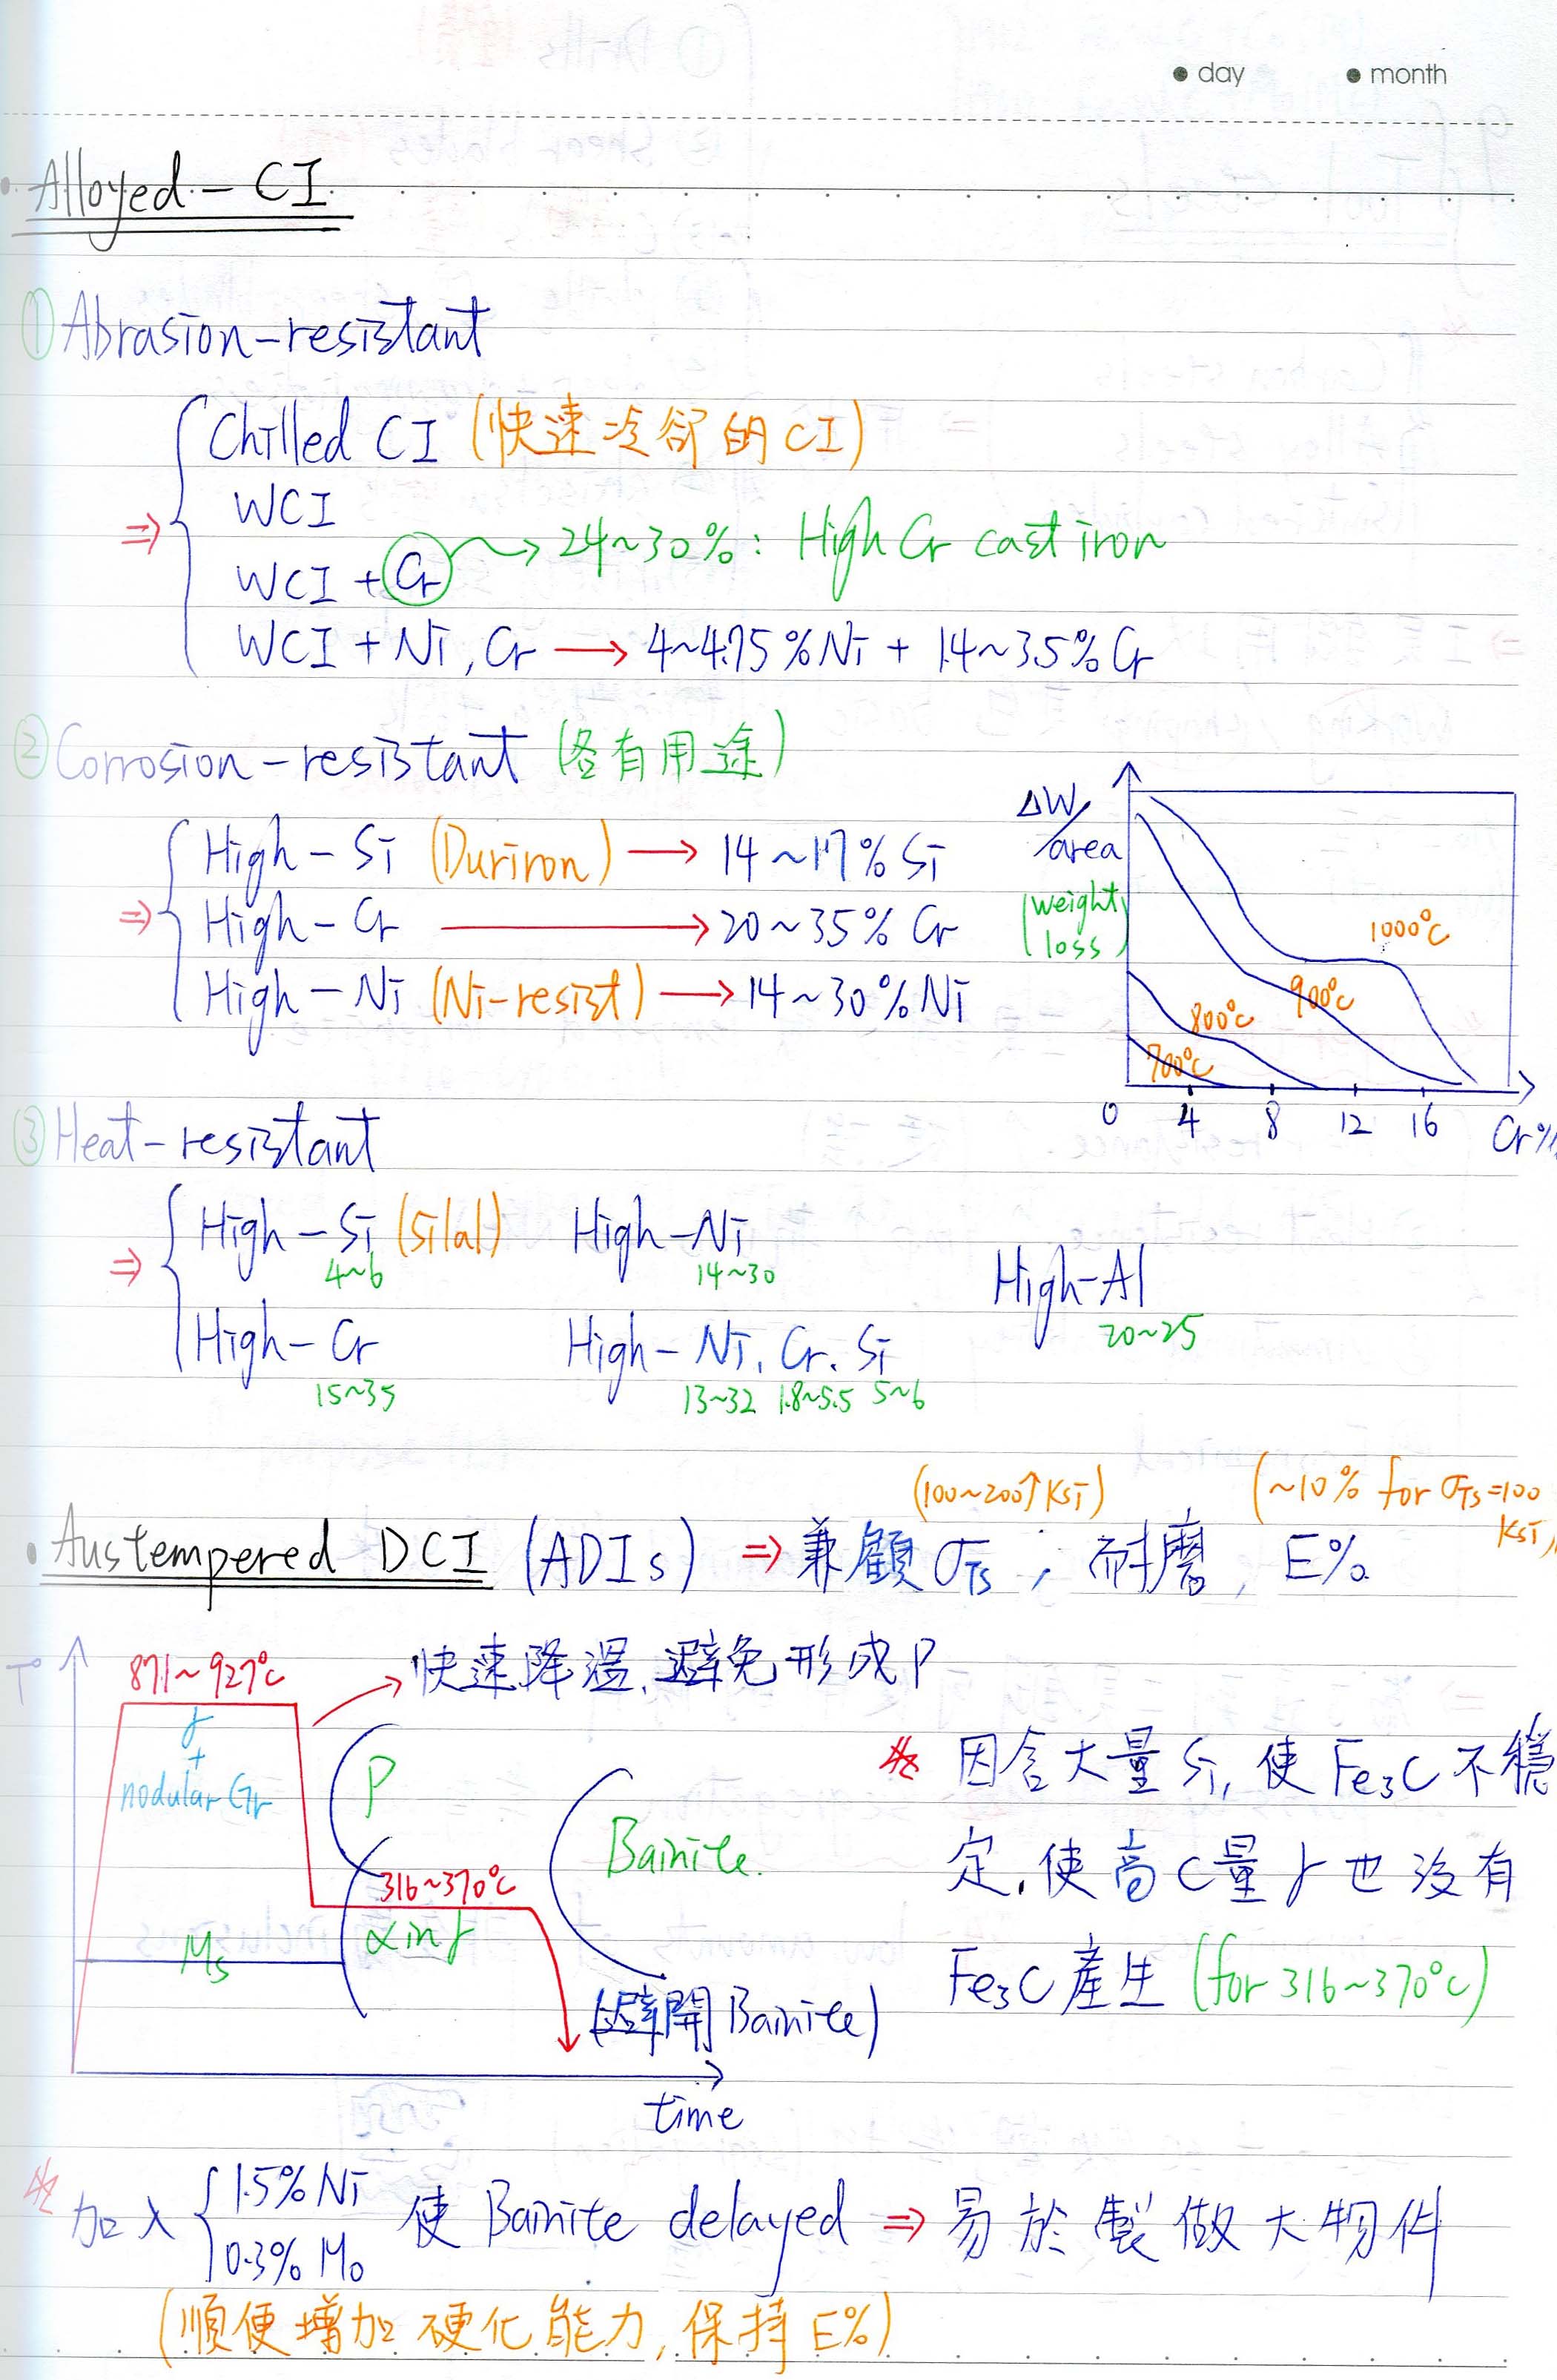 ● day ● month
Alloyed - CI
① Abrasion-resistant
Chilled CI (快速冷卻的CI)
WCI
WCI + Cr → 24~30%: High Cr cast iron
⇒
WCI + Ni, Cr → 4~4.75%Ni + 1.4~3.5%Cr
② Corrosion-resistant (各有用途)
High-Si (Duriron) → 14~17%Si
⇒ High-Cr → 20~35% Cr
High-Ni (Ni-resist) → 14~30%Ni
ΔW/area
(weight loss)
1000°C
900°C
800°C
700°C
0 4 8 12 16 Cr%
③ Heat-resistant
⇒ High-Si (Silal) High-Ni High-Al
4~6 14~30 20~25
High-Cr High-Ni, Cr, Si
15~35 13~32 1.8~5.5 5~6
(100~200↑ksi) (~10% for σTS=100 ksi)
• Austempered DCI (ADIs) ⇒ 兼顧σTS, 耐磨, E%
T°
871~927°C → 快速降溫,避免形成P
γ
+
nodular Gr
P
Bainite.
316~370°C
α in γ
Ms
(避開Bainite)
time
※ 因含大量Si, 使Fe₃C不穩
定,使高C量γ也沒有
Fe₃C產生 (for 316~370°C)
※ 加入 { 1.5%Ni 0.3%Mo 使 Bainite delayed ⇒ 易於製做大物件
(順便增加硬化能力,保持E%)